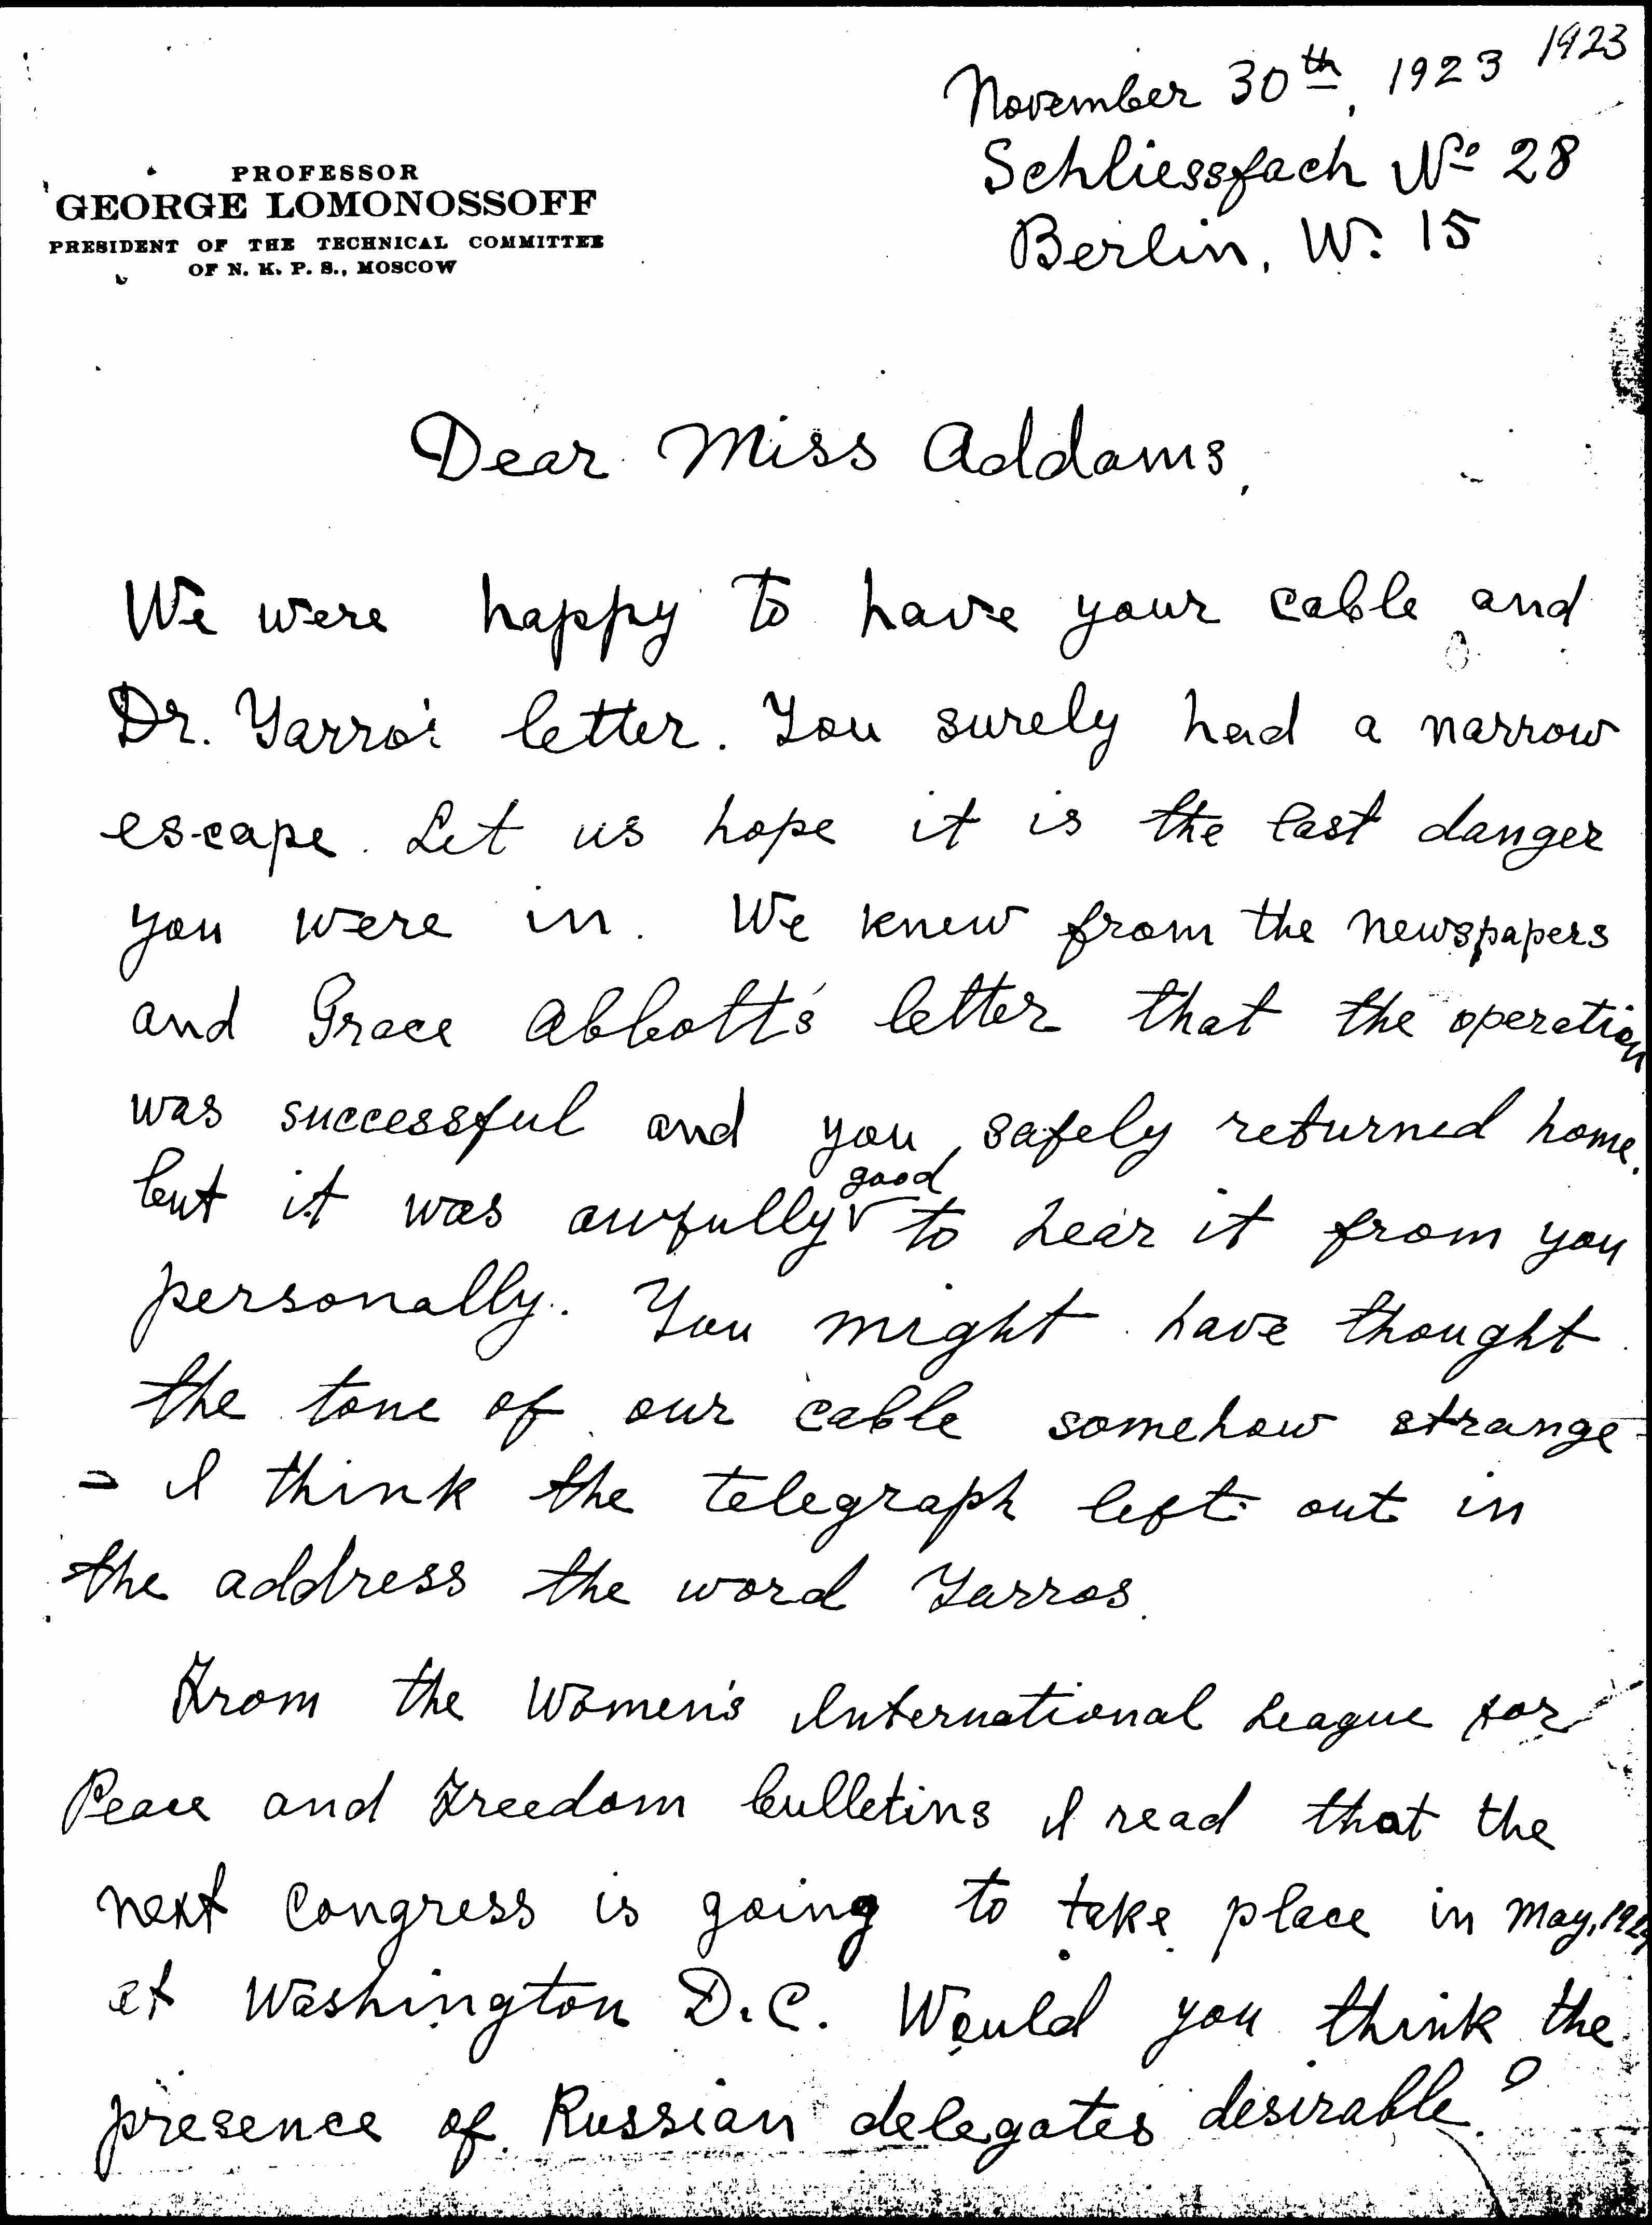 1923
November 30th, 1923
Schliessfach № 28
Berlin, W. 15
PROFESSOR
GEORGE LOMONOSSOFF
PRESIDENT OF THE TECHNICAL COMMITTEE
OF N. K. P. S., MOSCOW
Dear Miss Addams,
We were happy to have your cable and
Dr. Yarro's letter. You surely had a narrow
es-cape. Let us hope it is the last danger
you were in. We knew from the newspapers
and Grace Abbott's letter that the operation
was successful and you safely returned home.
but it was awfully good to hear it from you
personally. You might have thought
the tone of our cable somehow strange -
= I think the telegraph left out in
the address the word Yarros.
From the Women's International League for
Peace and Freedom bulletins I read that the
next Congress is going to take place in May, 1924
at Washington D.C. Would you think the
presence of Russian delegates desirable?